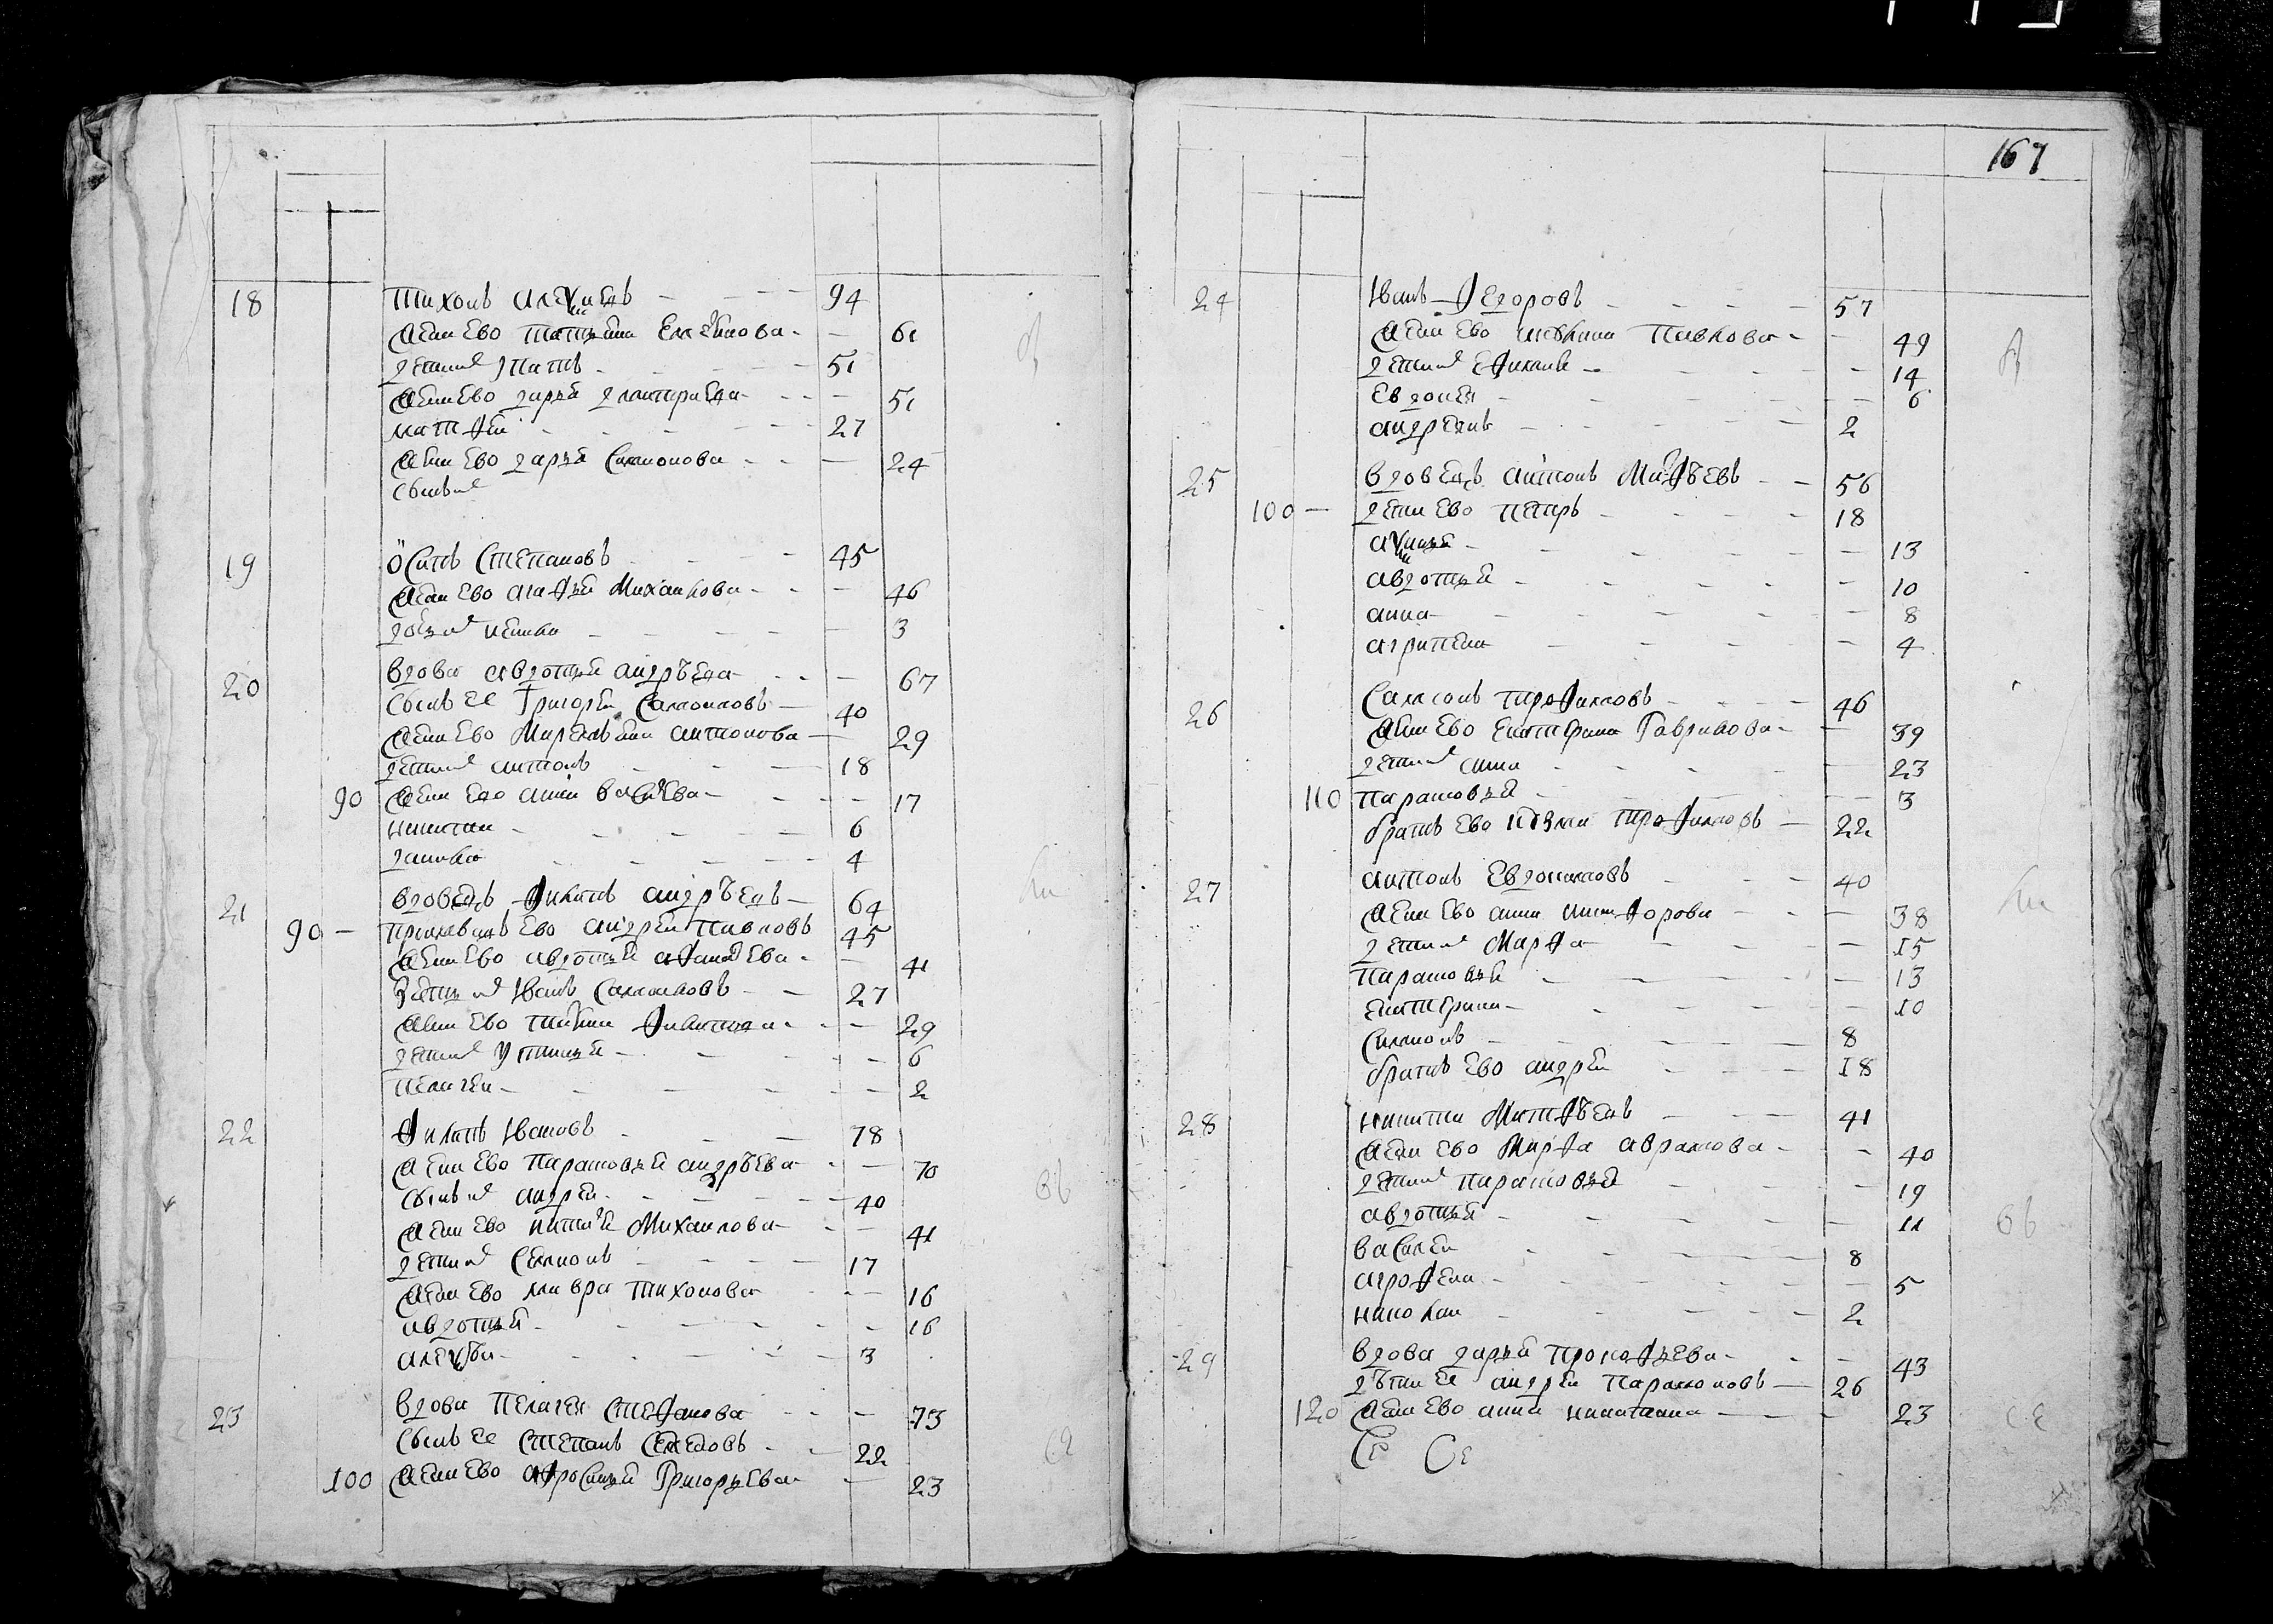 167
18 Тихонъ Алеѯиевъ 94
Жена ево Татьяна 61
дети их Ипатъ 51
Жена ево Дарья Дмитриева 51
Матфеи 27
Жена ево Дарья Симионова 24
сынъ их
19 Осипъ Степановъ 45
Жена ево Агафья Михаилова 46
дочь их 3
20 вдова Авдотья Андрѣева 67
сынъ ее Григореи Самоиловъ 40
Жена ево Маремьяна Антонова 29
дети их Антонъ 18
90 Жена ево Анна Василева 17
Никита 6
Данила 4
21 вдовецъ Филипъ Андрѣевъ 64
90 — племянъ ево Андреи Павловъ 45
Жена ево Авдотья Афанасева 41
зять их Иванъ Самоиловъ 27
Жена ево Татьяна Филипова 29
дети их Устинья 6
Пелагея 2
22 Филипъ Ивановъ 78
Жена ево Парасковья Андрѣева 70
сынъ их Андреи 40
Жена ево Наталья Михаилова 41
дети их Семионъ 17
Жена ево Мавра Тихонова 16
Авдотья 16
Алеѯѣи 3
23 вдова Пелагея Стефанова 73
сынъ ее Степанъ 22
100 Жена ево Афросинья Григорьева 23
24 Иванъ Федоровъ 57
Жена ево Павлова 49
дети их 14
Евдокея 6
Андреянъ 2
25 вдовецъ Антонъ Матфѣевъ 56
100 — дети ево Петръ 18
Аѯинья 13
Авдотья 10
Анна 8
Агрипена 4
26 Самсонъ Трофимовъ 46
Жена ево Екатерина Гаврилова 39
дети их Анна 23
110 Парасковья 3
братъ ево Козма Трофимовъ 22
27 Антонъ Евдокимовъ 40
Жена ево Анна Никифорова 38
дети их Марфа 15
Парасковья 13
Екатерина 10
Симионъ 8
братъ ево Андреи 18
28 Никита Матфѣевъ 41
Жена ево Марфа Аврамова 40
дети их Парасковья 19
Авдотья 11
Василеи 8
Агрофена 5
Николаи 2
29 вдова Дарья Прокофьева 43
дѣти ее Андреи Парамоновъ 26
120 Жена ево Анна Никитина 23
Се Се